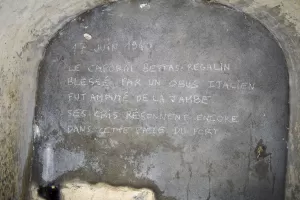 17 JUIN 1940
LE CAPORAL BEYRAS-REGALIN
BLESSÉ PAR UN OBUS ITALIEN
FUT AMPUTÉ DE LA JAMBE
SES CRIS RESONNENT ENCORE
DANS CETTE PARTIE DU FORT